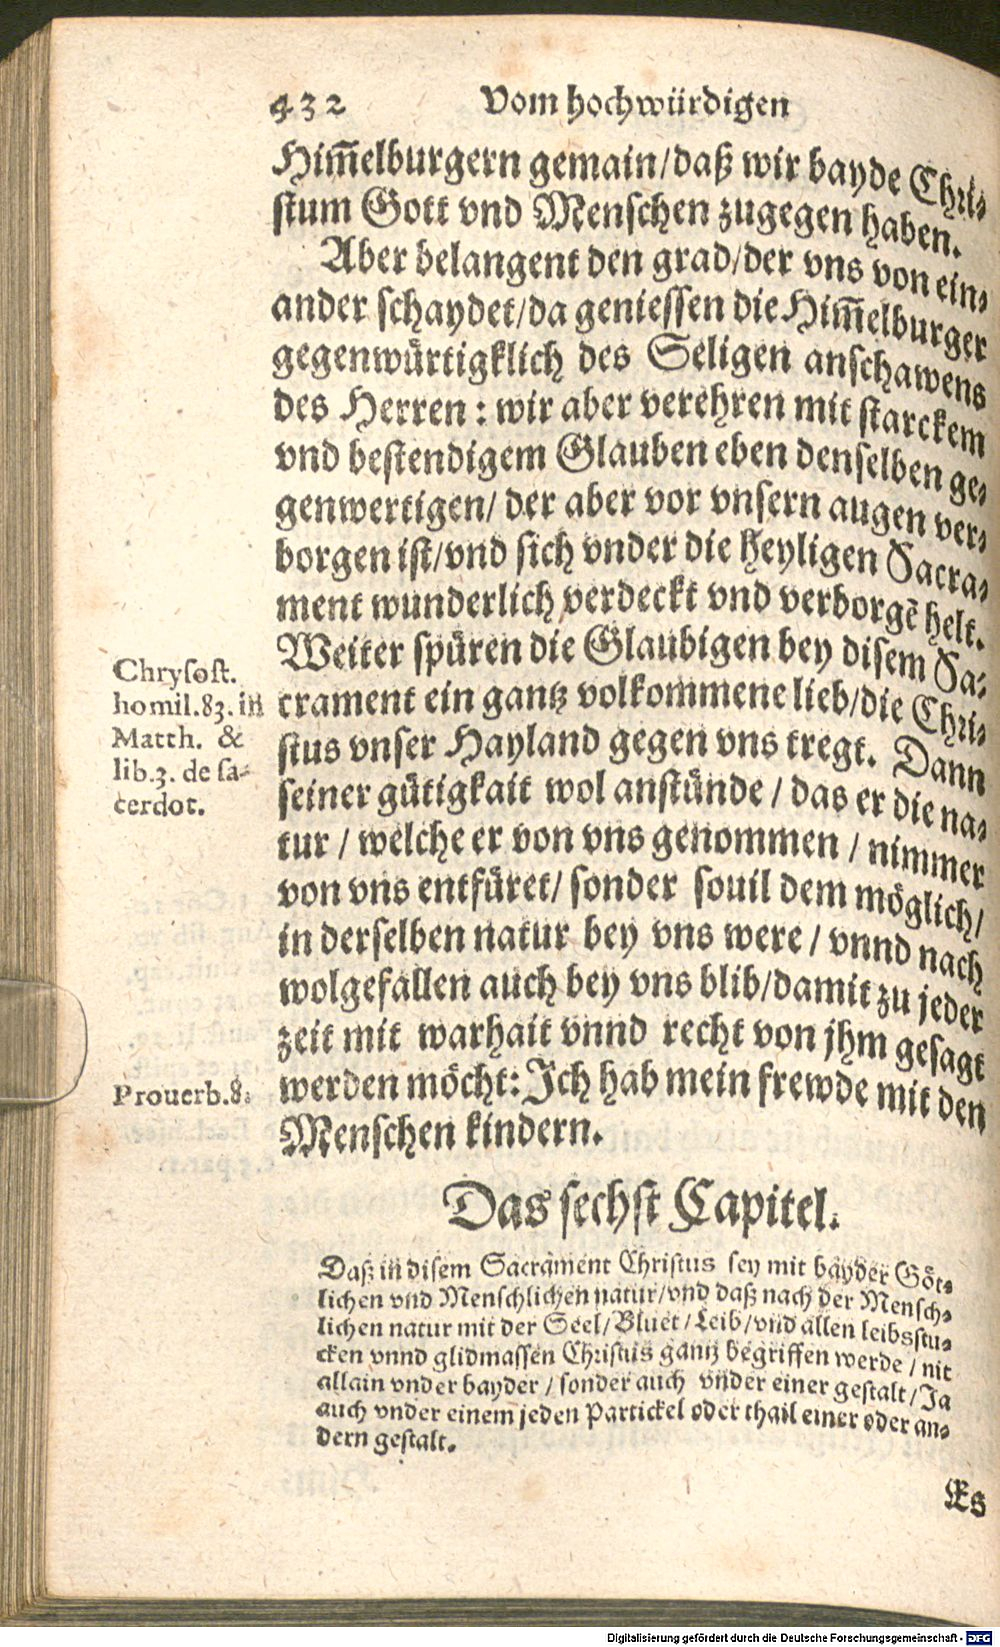 432 Vom hochwürdigen
Him̃elburgern gemain/daß wir bayde Chri-
stum Gott vnd Menschen zugegen haben.
Aber belangent den grad/der vns von ein-
ander schaydet/da geniessen die Him̃elburger
gegenwürtigklich des Seligen anschawens
des Herren: wir aber verehren mit starckem
vnd bestendigem Glauben eben denselben ge-
genwertigen/ der aber vor vnsern augen ver-
borgen ist/vnd sich vnder die heyligen Sacra-
ment wunderlich verdeckt vnd verborgẽ helt.
Weiter spüren die Glaubigen bey disem Sa-
crament ein gantz volkommene lieb/die Chri-
stus vnser Hayland gegen vns tregt. Dann
seiner gütigkait wol anstünde / das er die na-
tur / welche er von vns genommen / nimmer
von vns entfüret/ sonder souil dem möglich/
in derselben natur bey vns were / vnnd nach
wolgefallen auch bey vns blib/damit zu jeder
zeit mit warhait vnnd recht von jhm gesagt
werden möcht: Ich hab mein frewde mit den
Menschen kindern.
Chrysost.
homil.83. in
Matth. &
lib.3. de sa-
cerdot.
Prouerb.8.
Das sechst Capitel.
Daß in disem Sacrament Christus sey mit bayder Göt-
lichen vnd Menschlichen natur/vnd daß nach der Mensch-
lichen natur mit der Seel/Bluet/Leib/vnd allen leibsstu-
cken vnnd glidmassen Christus gantz begriffen werde / nit
allain vnder bayder / sonder auch vnder einer gestalt/Ja
auch vnder einem jeden Partickel oder thail einer oder an-
dern gestalt.
Es
Digitalisierung gefördert durch die Deutsche Forschungsgemeinschaft - DFG